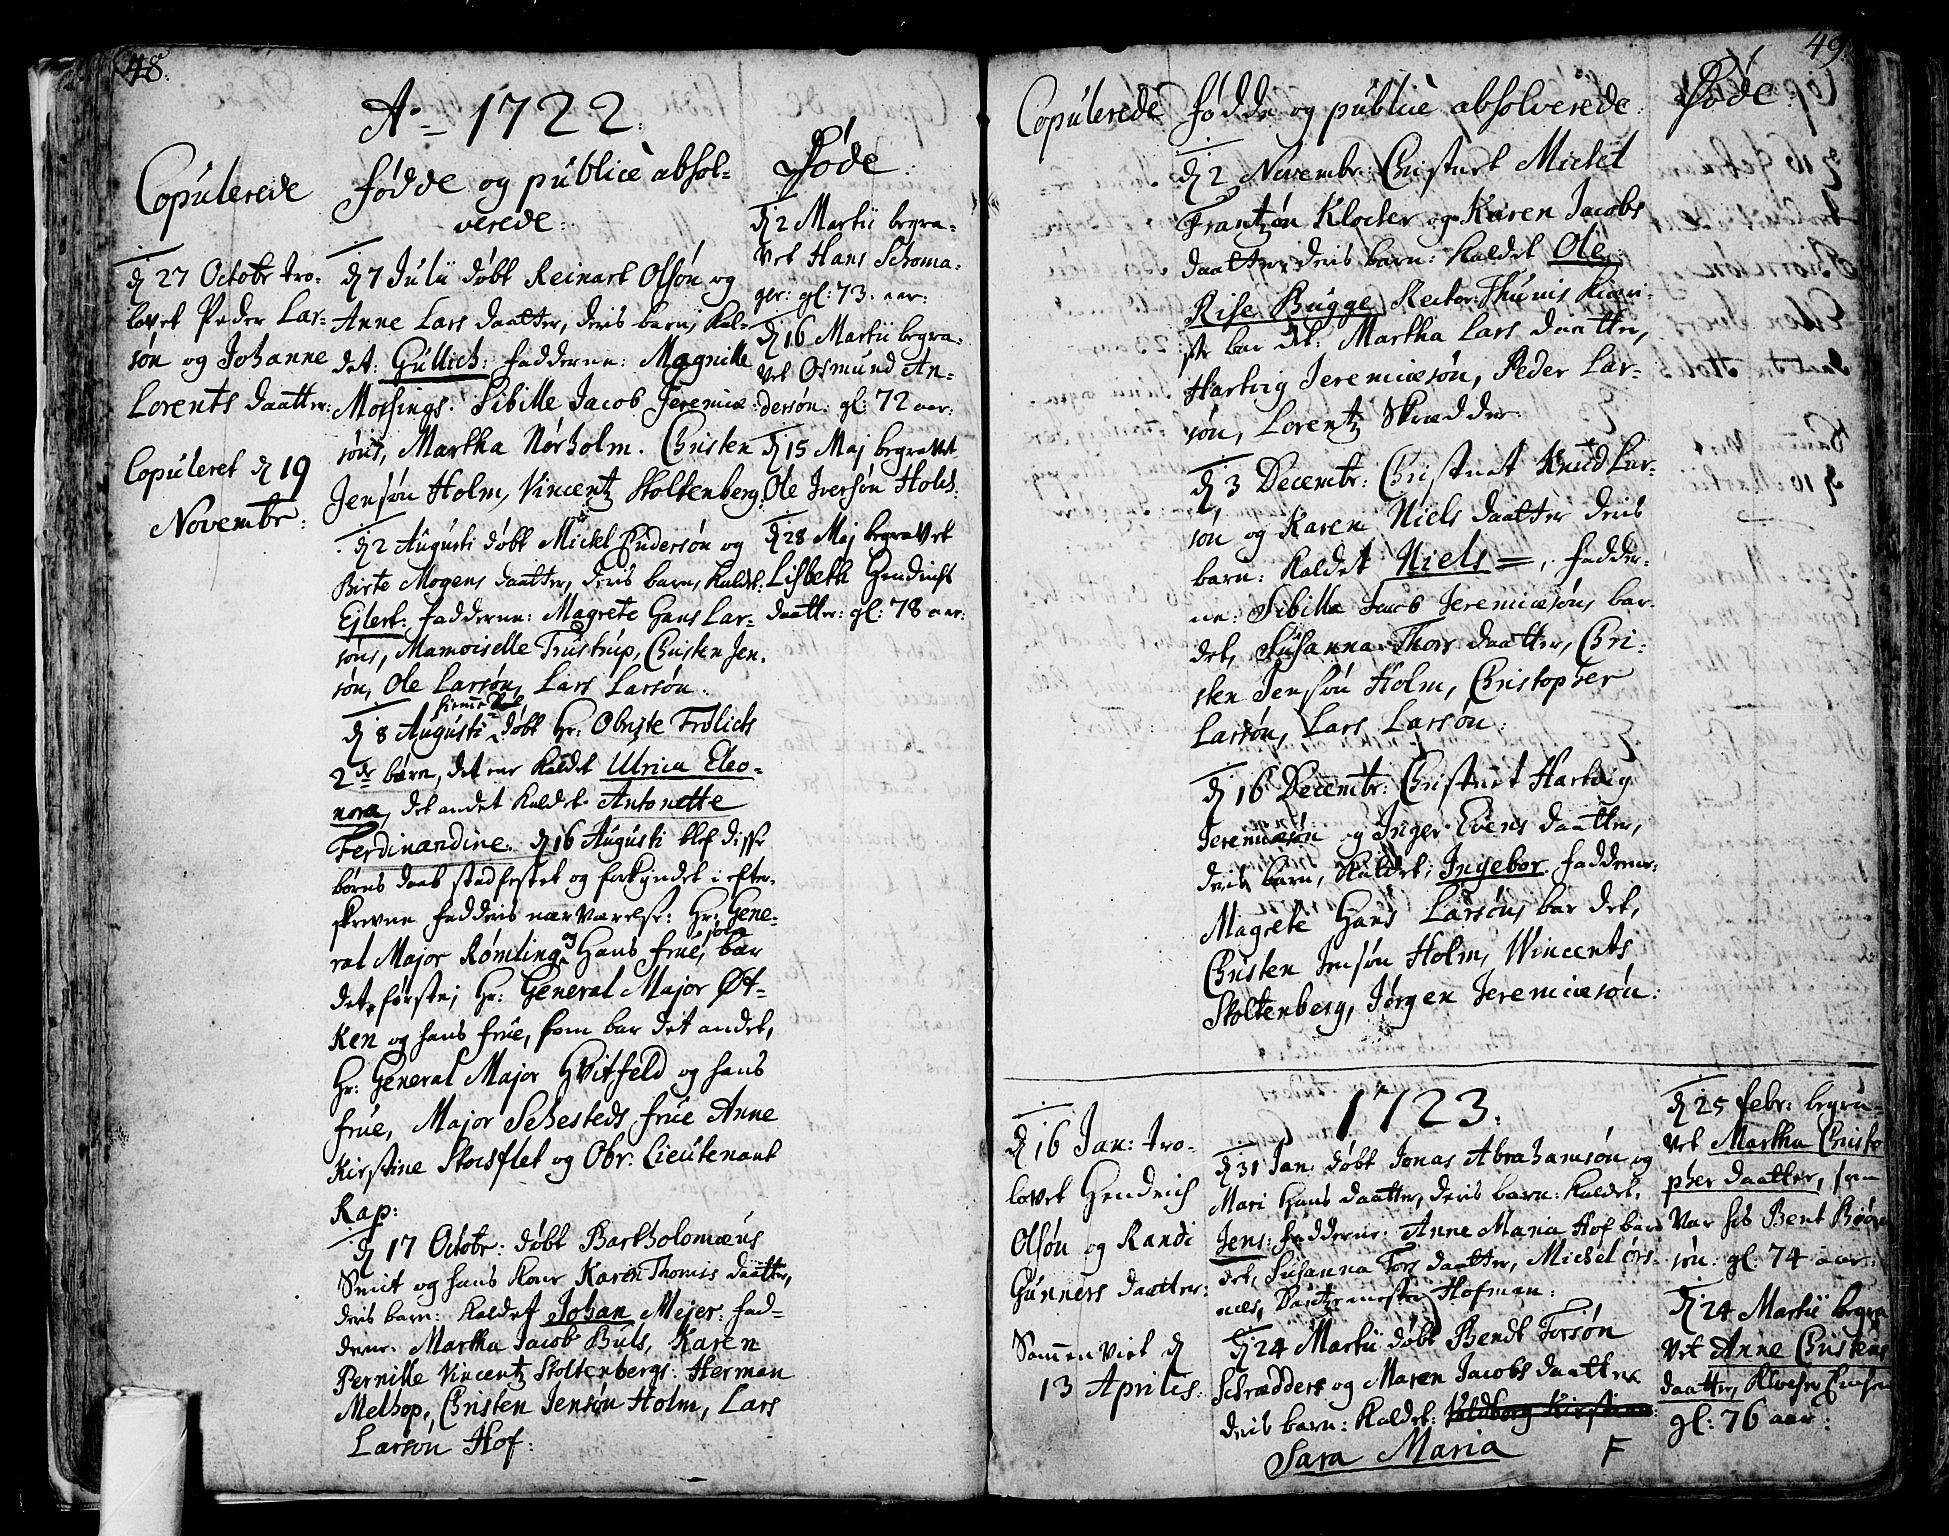 48.
Aº 1722.
Copulerede
đ 27 Octobr tro-
lovet Peder Lar-
søn og Johanne
Lorents daatter:
Copuleret đ 19
Novembr:
fødde og publicè absol-
verede:
đ 7 Julii døbt Reinart Olsøn og
Anne Lars daatter, deris barn, kal-
det: Gullich: fadderne: Magnille
Mossings. Sibille Jacob Jeremiæ
søns, Martha Nørholm. Christen
Jensøn Holm, Vincentz Stoltenberg.
đ 2 Augusti døbt Mickel Endersøn og
Birte Mogens daatter, deris barn, kaldet:
Ejlert: fadderne: Magrete Hans Lar-
søns, Mamoiselle Trustrup, Christen Jen-
søn, Ole Larsøn, Lars Larsøn.
đ 8 Augusti døbt Hr: Obriste Frölichs
2de børn, det ene kaldet Ulrica Eleo-
nora, det andet kaldet Antonette
Ferdinandine. đ 16 Augusti blef disse
børns daab stadfestet og forkyndet i efter-
skrevne fadderis nærværelse: Hr: Gene-
ral Major Rømling og Hans frue, som bar
det første; Hr: General Major Øt-
ken og hans frue, som bar det andet,
Hr: General Major Hvitfeld og hans
frue, Major Sehesteds frue Anne
Kirstine Stocsflet og Obr: Lieutenant
Kap:
đ 17 Octobr: døbt Bartholomæus
Smit og hans kone Karen Thomis daatter,
deris barn: kaldet Johan Mejer: fad-
derne: Martha Jacob Buls, Karen
Pernille Vincentz Stoltenbergs: Herman
Melhop, Christen Jensøn Holm, Lars
Larsøn Hof:
Døde:
đ 2 Martii begra-
vet Hans Schoma-
ger: gl: 73. aar:
đ 16 Martii begra-
vet Osmund An-
dersøn. gl: 72 aar:
đ 15 Maj begravet
Ole Iversøn Holch:
đ 28 Maj begravet
Lisbeth Hendrichs
daatter: gl: 78 aar:
49.
Copulerede fødde og publicè absolverede: Døde:
đ 2 Novembr: Christnet Mickel
Frantzøn Klocker og Karen Jacobs
daatter, deris barn: kaldet Ole
Rise Bugge, Rector Thunis
bar det: Martha Lars daatter,
Hartvig Jeremiæsøn, Peder Lar-
søn, Lorentz Skrædder:
đ 3 Decembr: Christnet Knud Lar-
søn og Karen Niels daatter deris
barn: kaldet Niels =. fadder-
ne: Sibille Jacob Jeremiæsøns bar
det, Susanna Thors daatter, Chri-
sten Jensøn Holm, Christopher
Larsøn, Lars Larsøn:
đ 16 Decembr: Christnet Hartvig
Jeremiæsøn og Inger Evens daatter,
deris barn, kaldet: Ingebor. fadderne:
Magrete Hans Larsøns bar det,
Christen Jensøn Holm, Wincents
Stoltenberg, Jørgen Jeremiæsøn:
1723.
đ 16 Jan: tro-
lovet Hendrich
Olsøn og Randi
Gunners daatter:
Sammenviet đ
13 Aprilis:
đ 31 Jan: døbt Jonas Abrahamsøn og
Mari Hans daatter, deris barn: kaldet,
Jens: fadderne: Anne Maria Hof bar
det, Susanna Tors daatter, Michel Örs-
næs, Dantzemester Hofman:
đ 24 Martii døbt Bendt Torsøn
Schrædders og Maren Jacobs daatter
deris barn: kaldet: Voldborg Kirstine:
Sara Maria F
đ 25 febr: begra-
vet Martha Christo
pher daatter, som
var hos Bent
søn: gl: 74 aar:
đ 24 Martii begra
vet Anne Christens
daatter,
gl: 76 aar: